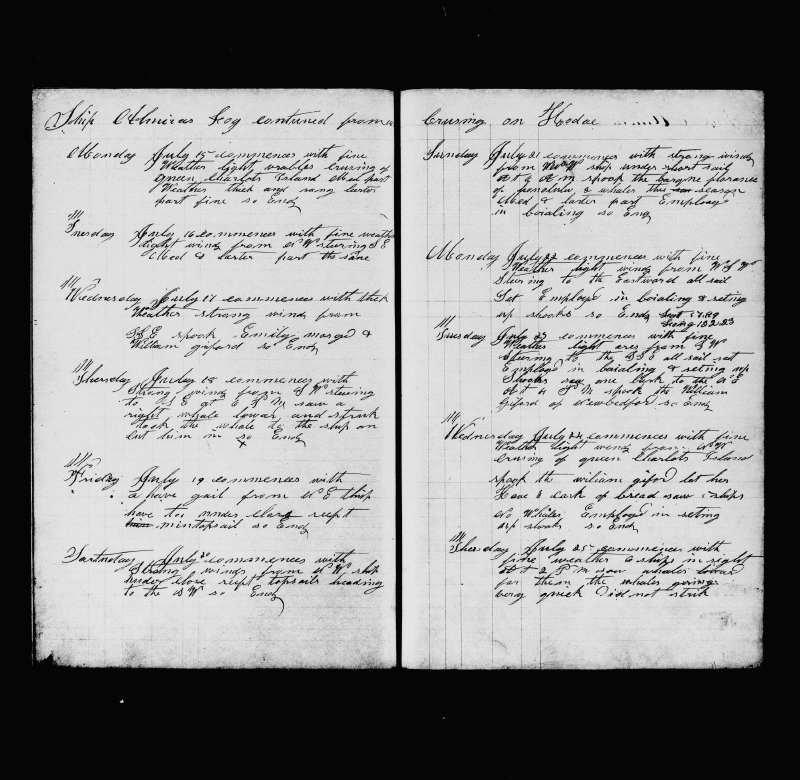 Ship Almiras Log contunued from
Monday July 15 commences with fine
Weather light varables crusing of
queen Charlots Island Med part
Weather thick and rany larter
part fine so Ends
Tuesday July 16 commences with fine weather
light wind from N W sturing S E
Med & larter part the same
Wednesday July 17 commences with thick
Weather strong winds from
S S E spook Emily morgan &
William giford so Ends
Thursday July 18 commences with
Strong winds from S W steering
to S E at 6 P M saw a
right whale lowar and struk
took the whale to the ship an
cut him in so Ends
Friday July 19 commences with
a heve gail from N E ship
have too under close reept
mintopsail so Ends
Sartuaday July 20 commences with
Strong winds from N W ship
under close reept topsails heading
to the W so Ends
Crusing on Kodac
Sunday July 21 commences with strong winds
from ship under short sail
At 6 A m spook the barque florance
of honolulu, 2 whales this season
Med & larter part Employed
in boialing so Ends
Monday July 22 commences with fine
Weather light winds from
Stering to the Eastward all sail
Set Employed in boialing & seting
up shooks so Ends
Tuesday July 23 commences with fine
Weather light ares from S W
Stering to the S S E all sail set
Employed in boialing & seting up
Shooks saw one bark to the N E
At 4 P M spook the William
Giford of Newbedford so Ends
Wednesday July 24 commences with fine
Weather light wends from
Crusing of queen Charlots Island
spook the wiliam giford let her
Have 2 cask of bread saw ships
No Whales Employed in seting
up shooks so Ends
Thursday July 25 commences with
fine weather 6 ships in sight
At 2 P m saw whales lowar
for them the whales going
very quick Did not strik